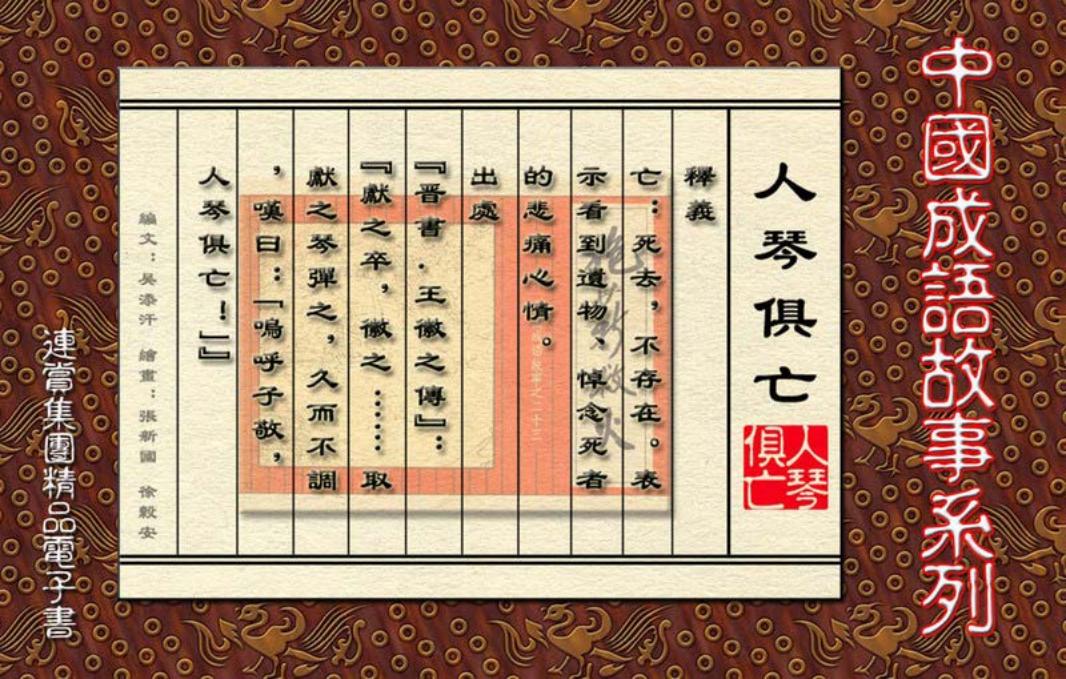 中國成語故事系列
人琴俱亡
人琴
俱亡
釋義
亡：死去，不存在。表
示看到遺物、悼念死者
的悲痛心情。
出處
『晋書．王徽之傳』：
『獻之卒，徽之……取
獻之琴彈之，久而不調
，嘆曰：「嗚呼子敬，
人琴俱亡！」』
編文：吳添汗　繪畫：張新國　徐毅安
連賞集團精品電子書
抱薪救火